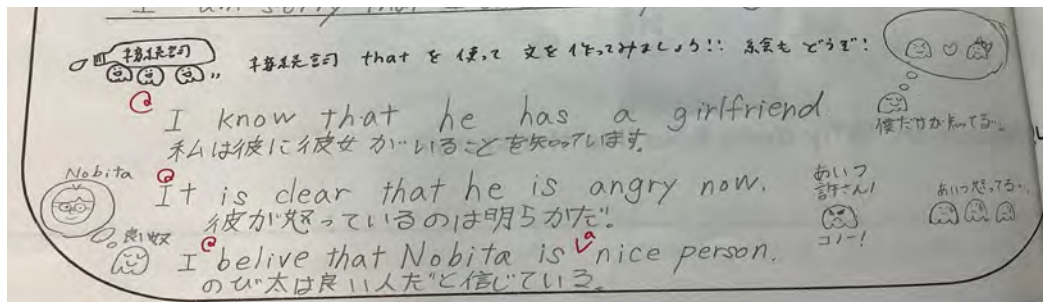 接続詞
接続詞 that を 使って 文を作ってみましょう!! 絵もどうぞ!
I know that he has a girlfriend
私は彼に彼女がいることを知っています。
僕だけが知ってる…。
Nobita
It is clear that he is angry now.
彼が怒っているのは明らかだ!
あいつ
許さん!
コノー!
あいつ怒ってる…。
良い奴
I belive that Nobita is a nice person.
のび太は良い人だと信じている。